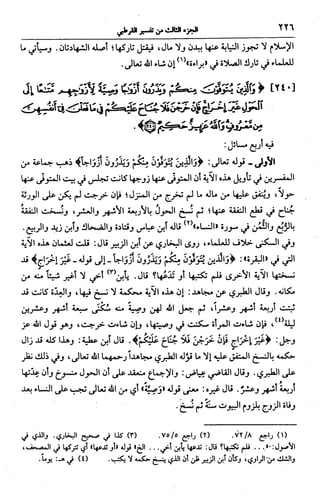 ٢٢٦ الجزء الثالث من تفسير القرطبي
الإسلام لا تجوز النيابة عنها ببدن ولا مال، فيقتل تاركها؛ أصله الشهادتان. وسيأتي ما
للعلماء في تارك الصلاة في «براءة»(١) إن شاء الله تعالى.
[٢٤٠] ﴿وَالَّذِينَ يُتَوَفَّوْنَ مِنكُمْ وَيَذَرُونَ أَزْوَاجًا وَصِيَّةً لِّأَزْوَاجِهِم مَّتَاعًا إِلَى
الْحَوْلِ غَيْرَ إِخْرَاجٍ فَإِنْ خَرَجْنَ فَلَا جُنَاحَ عَلَيْكُمْ فِي مَا فَعَلْنَ فِي أَنفُسِهِنَّ
مِن مَّعْرُوفٍ وَاللَّهُ عَزِيزٌ حَكِيمٌ﴾.
فيه أربع مسائل:
الأولى ـ قوله تعالى: ﴿وَالَّذِينَ يُتَوَفَّوْنَ مِنكُمْ وَيَذَرُونَ أَزْوَاجًا﴾ ذهب جماعة من
المفسرين في تأويل هذه الآية أن المتوفى عنها زوجها كانت تجلس في بيت المتوفى عنها
حولاً، وينفق عليها من ماله ما لم تخرج من المنزل؛ فإن خرجت لم يكن على الورثة
جناح في قطع النفقة عنها؛ ثم نسخ الحول بالأربعة الأشهر والعشر، ونسخت النفقة
بالربع والثمن في سورة «النساء»(٢) قاله ابن عباس وقتادة والضحاك وابن زيد والربيع.
وفي السكنى خلاف للعلماء، روى البخاري عن ابن الزبير قال: قلت لعثمان هذه الآية
التي في «البقرة»: ﴿وَالَّذِينَ يُتَوَفَّوْنَ مِنكُمْ وَيَذَرُونَ أَزْوَاجًا ـ إلى قوله ـ غَيْرَ إِخْرَاجٍ﴾ قد
نسختها الآية الأخرى فلم تكتبها أو تدعها؟ قال. يابن(٣) أخي لا أغير شيئاً منه من
مكانه. وقال الطبري عن مجاهد: إن هذه الآية محكمة لا نسخ فيها، والعدة كانت قد
ثبتت أربعة أشهر وعشراً، ثم جعل الله لهن وصية منه سكنى سبعة أشهر وعشرين
ليلة(٤)، فإن شاءت المرأة سكنت في وصيتها، وإن شاءت خرجت، وهو قول الله عز
وجل: ﴿غَيْرَ إِخْرَاجٍ فَإِنْ خَرَجْنَ فَلَا جُنَاحَ عَلَيْكُمْ﴾. قال ابن عطية: وهذا كله قد زال
حكمه بالنسخ المتفق عليه إلا ما قوله الطبري مجاهداً رحمهما الله تعالى، وفي ذلك نظر
على الطبري. وقال القاضي عياض: والإجماع منعقد على أن الحول منسوخ وأن عدتها
أربعة أشهر وعشر. قال غيره: معنى قوله «وصية» أي من الله تعالى تجب على النساء بعد
وفاة الزوج بلزوم البيوت سنة ثم نسخ.
(١) راجع ٧٢/٨. (٢) راجع ٧٥/٥. (٣) كذا في صحيح البخاري. والذي في
الأصول:... فلم تكتبها؟ قال: تدعها يابن أخي... الخ» قوله «أو تدعها» أي تتركها في المصحف،
والشك من الراوي، وكأن ابن الزبير ظن أن الذي ينسخ حكمه لا يكتب. (٤) في هـ: يوماً.